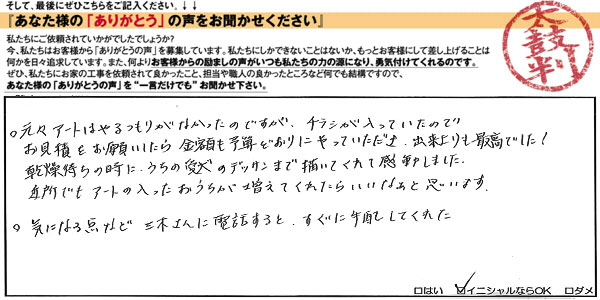 そして、最後にぜひこちらをご記入ください。↓↓
『あなた様の「ありがとう」の声をお聞かせください』
私たちにご依頼されていかがでしたでしょうか?
今、私たちはお客様から「ありがとうの声」を募集しています。私たちにしかできないことはないか、もっとお客様にして差し上げることは
何かを日々追求しています。また、何よりお客様からの励ましの声がいつも私たちの力の源になり、勇気付けてくれるのです。
ぜひ、私たちにお家の工事を依頼されて良かったこと、担当や職人の良かったところなど何でも結構ですので、
あなた様の「ありがとうの声」を“一言だけでも”お聞かせ下さい。
太鼓判
○元々アートはやるつもりがなかったのですが、チラシが入っていたので
お見積をお願いしたら金額も予算どおりにやっていただき、出来上りも最高でした!
乾燥待ちの時に、うちの愛犬のデッサンまで描いてくれて感動しました。
近所でもアートの入ったおうちが増えてくれたらいいなぁと思います。
○気になる点など 三木さんに電話すると、すぐに手配してくれた
□はい ☑イニシャルならOK □ダメ